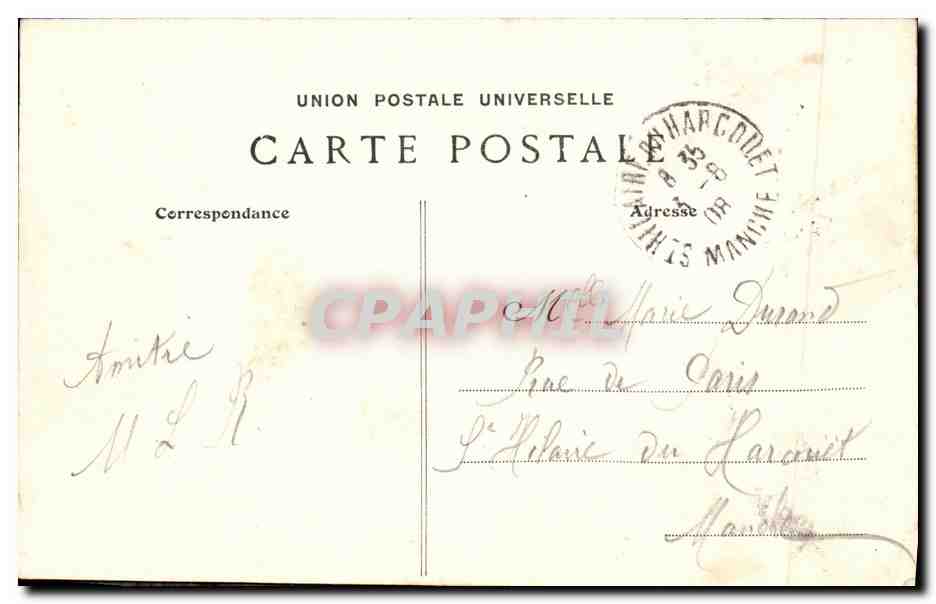 UNION POSTALE UNIVERSELLE
CARTE POSTALE
Correspondance
Adresse
ST HILAIRE DU HARCOUET MANCHE
8 35
5 -8
08
CPAPHIL
Mlle Marie Durand
Rue de Paris
St Hilaire du Harcouët
Manche
Amitié
M L R.